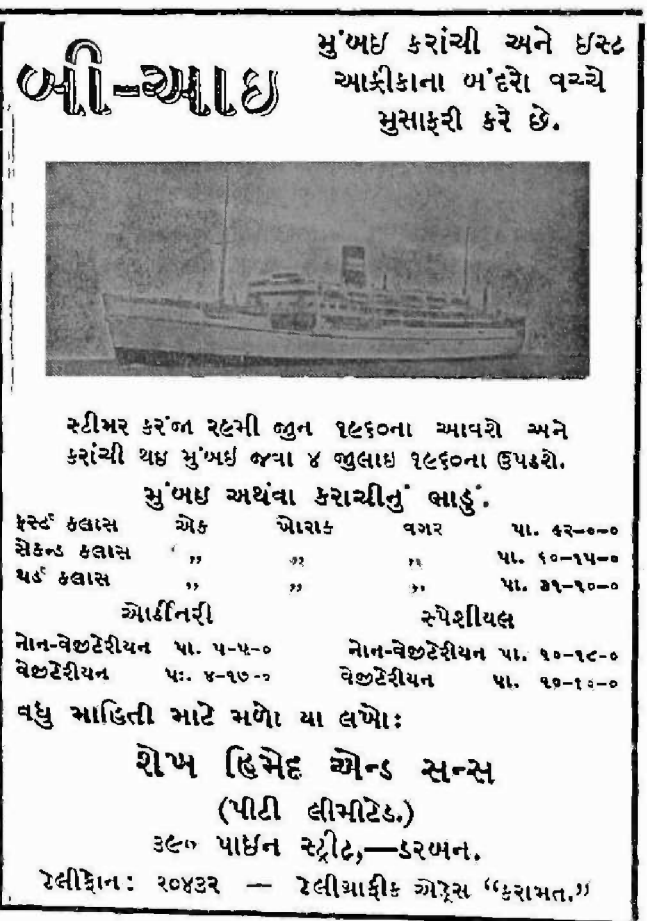 બી-આઇ
મુંબઇ કરાંચી અને ઇસ્ટ
આફ્રીકાના બંદરો વચ્ચે
મુસાફરી કરે છે.
સ્ટીમર કરંજા ૨૯મી જુન ૧૯૬૦ના આવશે અને
કરાંચી થઇ મુંબઈ જવા ૪ જુલાઇ ૧૯૬૦ના ઉપડશે.
મુંબઇ અથવા કરાચીનું ભાડું.
ફર્સ્ટ કલાસ એક ખોરાક વગર પા. ૯૨-૦-૦
સેકન્ડ કલાસ ,, ,, ,, પા. ૬૦-૧૫-૦
થર્ડ કલાસ ,, ,, ,, પા. ૩૧-૧૦-૦
ઓર્ડીનરી સ્પેશીયલ
નોન-વેજીટેરીયન પા. ૫-૫-૦ નોન-વેજીટેરીયન પા. ૧૦-૧૮-૦
વેજીટેરીયન પા. ૪-૧૭-૦ વેજીટેરીયન પા. ૧૦-૧૦-૦
વધુ માહિતી માટે મળો યા લખો:
શેખ હિમેદ એન્ડ સન્સ
(પીટી લીમીટેડ.)
પાઇન સ્ટ્રીટ,—ડરબન.
ટેલીફોન: ૨૦૪૩૨ — ટેલીગ્રાફીક એડ્રેસ “કરામત.”